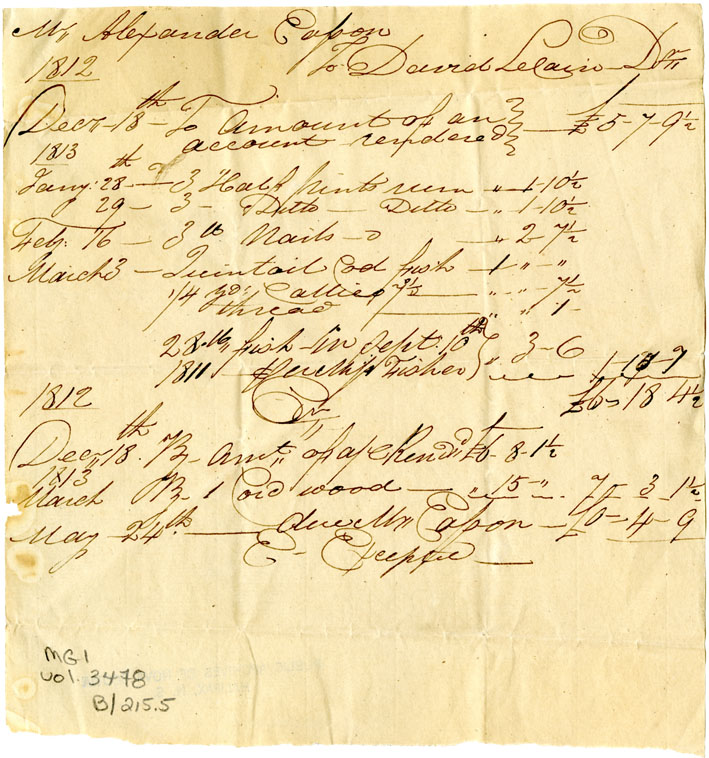 Mr Alexander Eason
1812 To David LeCain Dr
Decr 18th To Amount of an account rendered £5-7-9½
1813
Jany: 28th 3 Half pints rum " 1-10½
29 - 3 - Ditto - Ditto - " 1-10½
Feby. 16 - 3 lb Nails " 2 7½
March 3 - Quintail Cod fish - 1 " "
1/4 yd: Callico 2/2 " " 7½
thread " " 1
28 lb fish in Sept. 10th 1811 Fisher " 3-6 1-11-7
£6 18 4½
1812 Cr
Decr 18th. By Amt. of a/c Rendd £6-8-1½
1813
March By 1 Cord wood - " 15 " 7 3 1½
May 24th. due Mr Eason - £0-4-9
E- Excepted
MG1
vol. 3478
B/215.5